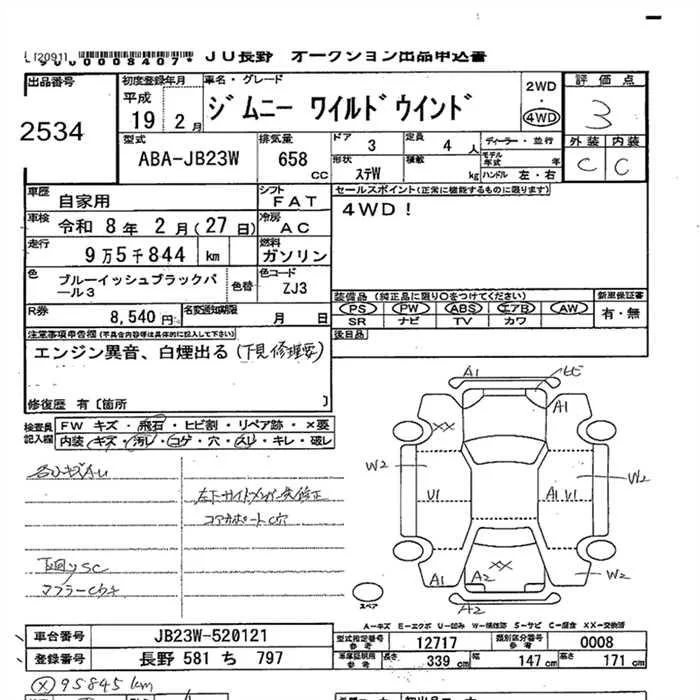 0008407* JU長野 オークション出品申込書
出品番号 2534
初度登録年月 平成 19 2月
車名・グレード ジムニー ワイルドウインド
2WD ・ 4WD
評価点 3
型式 ABA-JB23W
排気量 658 CC
ドア 3
定員 4 人
ディーラー・並行
形状 ステW
積載 kg
モデル年式 年
ハンドル 左・右
外装 C
内装 C
車歴 自家用
シフト FAT
セールスポイント(正常に機能するものに限ります)
4WD!
車検 令和 8年 2月(27日)
冷房 AC
走行 9万5千844 km
燃料 ガソリン
色 ブルーイッシュブラックパール3
色替
色コード ZJ3
装備品(純正品に限り○をつけてください)
PS PW ABS エアB AW
SR ナビ TV カワ
新車保証書 有・無
R券 8,540円
名変通知期限 月 日
後日品
注意事項申告欄(不具合内容等は具体的に記入して下さい)
エンジン異音、白煙出る(下見修理要)
修復歴 有〔箇所 〕
検査員記入欄
FW キズ・飛石・ヒビ割・リペア跡・×要
内装・キズ・汚レ・コゲ・穴・スレ・キレ・破レ
下回りSC
A1
A1
XX
W2
W2
U1
A1 U1
A1
A2
XX
W2
A2
スペア
A−キズ E−エクボ U−凹み W−補修跡 S−サビ C−腐食 XX−交換済
車台番号 JB23W-520121
型式指定番号 参考 12717
類別区分番号 参考 0008
登録番号 長野 581 ち 797
車庫証明用 参考 長さ 339 cm 幅 147 cm 高さ 171 cm
95845 km